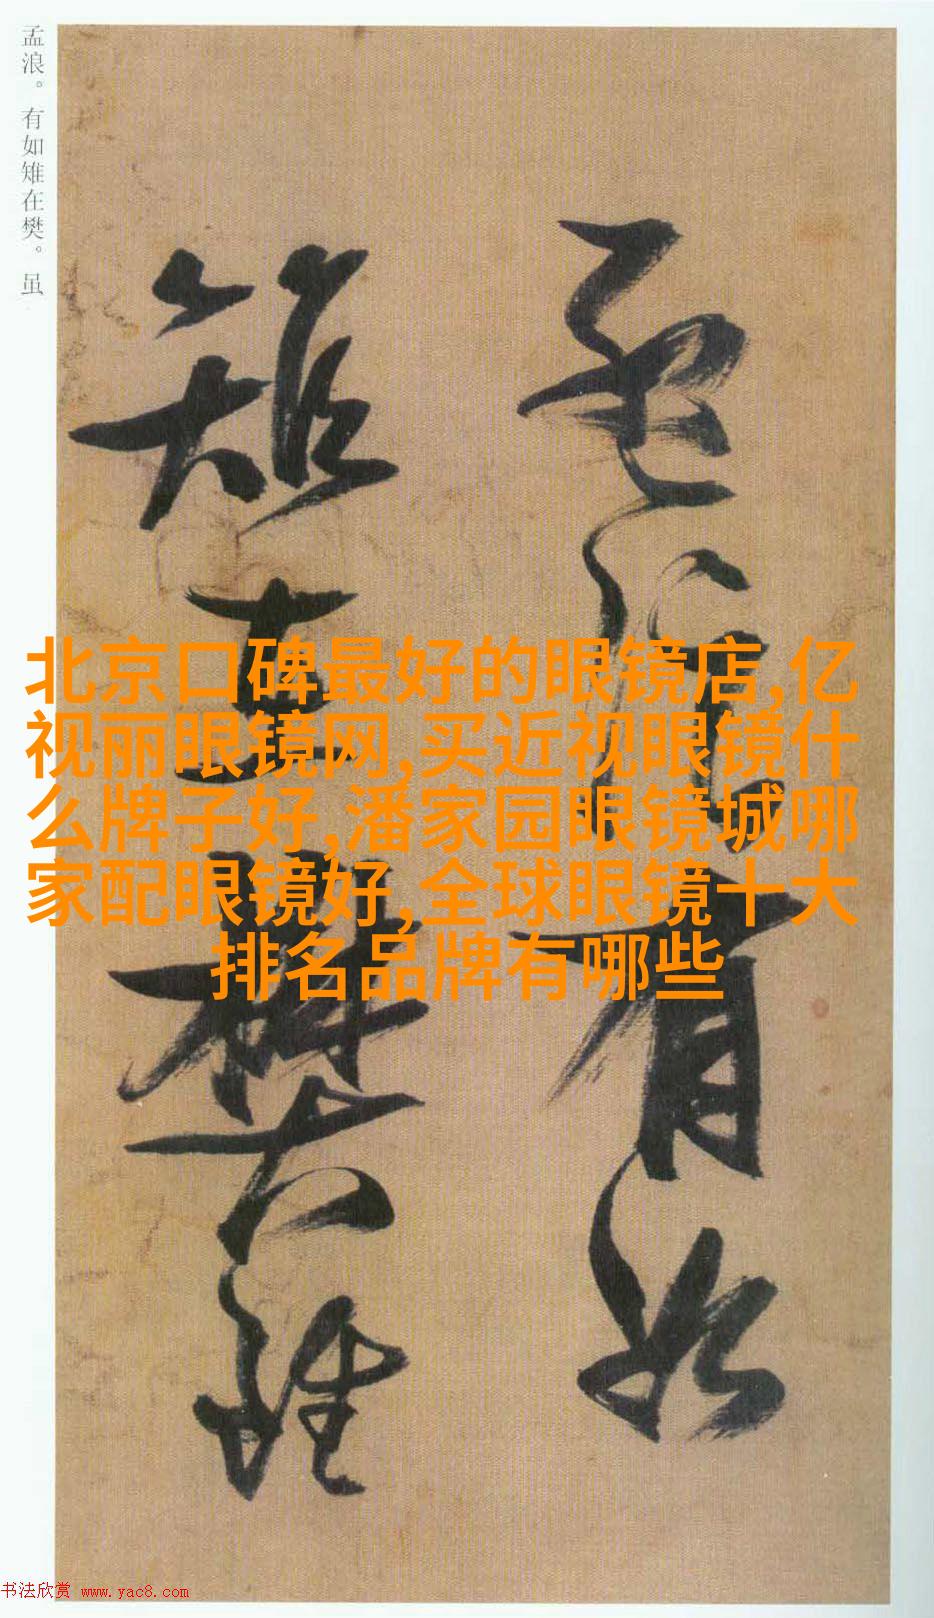 孟浪。有如雉在樊。虽
孟浪有如
雉在樊虽
北京口碑最好的眼镜店,亿
视丽眼镜网,买近视眼镜什
么牌子好,潘家园眼镜城哪
家配眼镜好,全球眼镜十大
排名品牌有哪些
书法欣赏 www.yac8.com